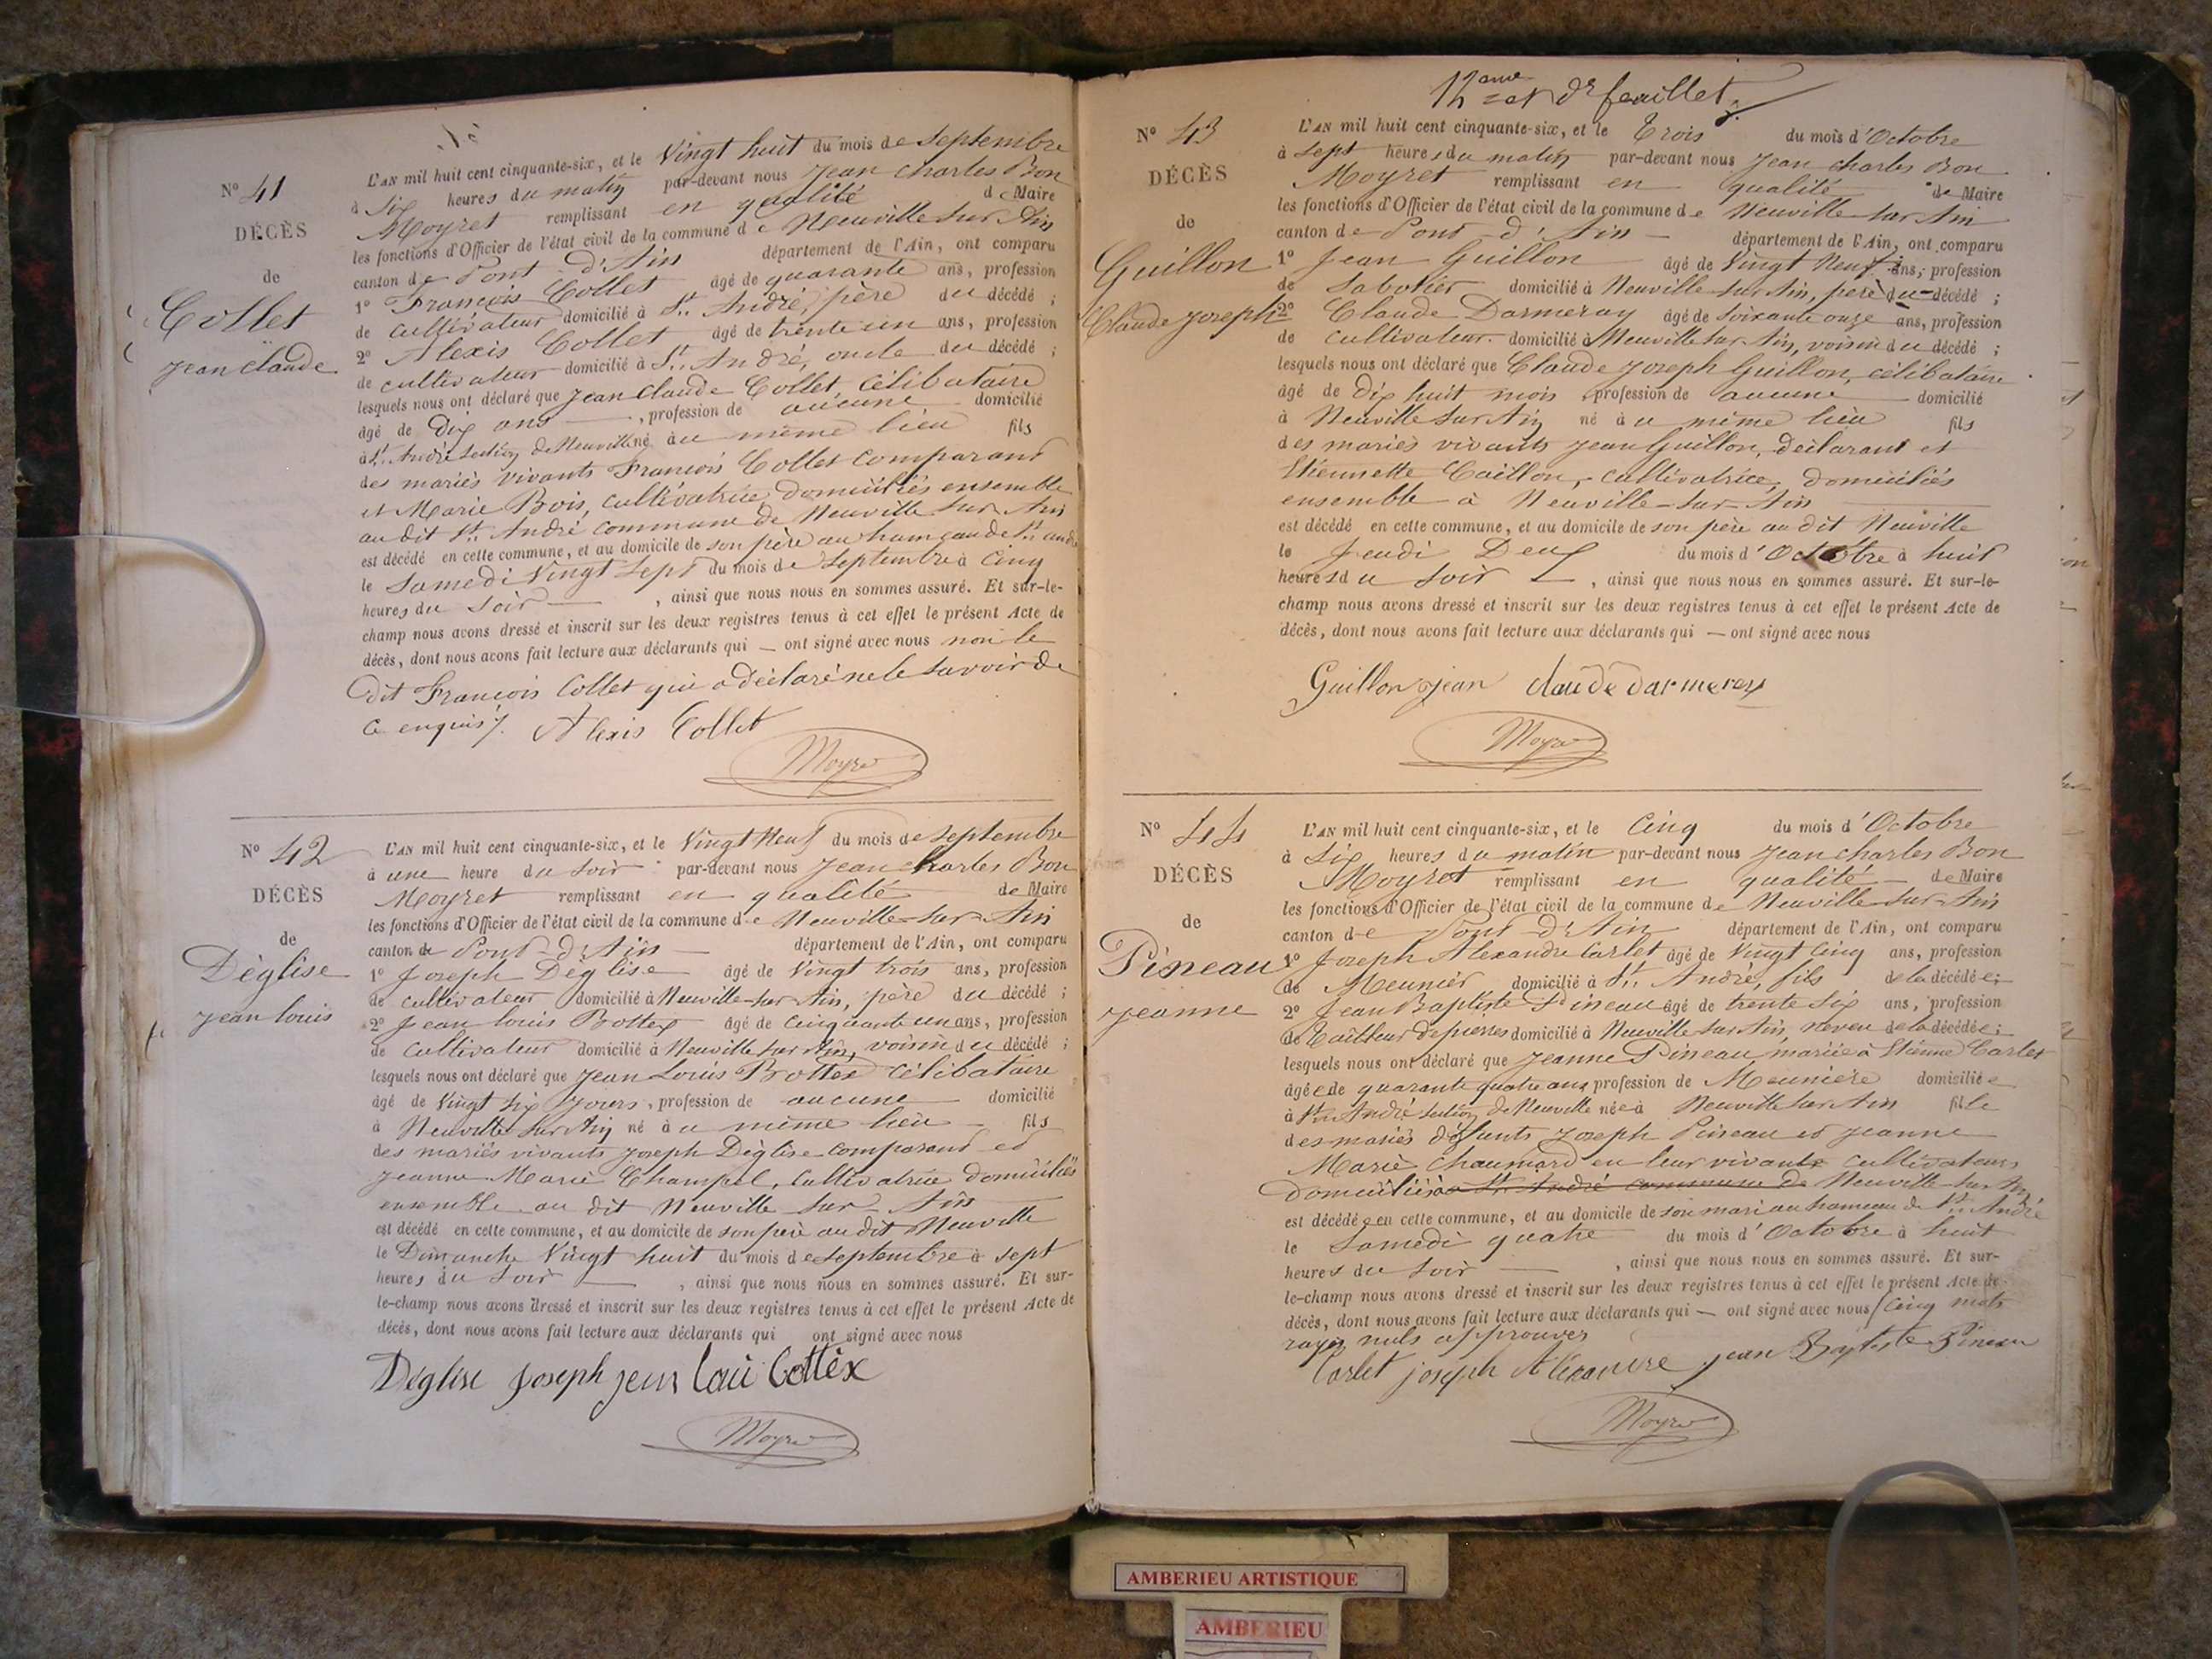 N° 41
DÉCÈS
de
Collet
Jean Claude
L'AN mil huit cent cinquante-six, et le Vingt huit du mois de Septembre
à Six heures du matin par-devant nous Jean Charles Bon
Moyret remplissant en qualité de Maire
les fonctions d'Officier de l'état civil de la commune de Neuville sur Ain
canton de Pont d'Ain département de l'Ain, ont comparu
1° François Collet âgé de quarante ans, profession
de cultivateur domicilié à St. André, père du décédé ;
2° Alexis Collet âgé de trente un ans, profession
de cultivateur domicilié à St. André, oncle du décédé ;
lesquels nous ont déclaré que Jean Claude Collet, célibataire
âgé de dix ans , profession de aucune domicilié
à St. André section de Neuville né à u même lieu fils
des mariés vivants François Collet comparant
et Marie Bois, cultivatrice, domiciliés ensemble
au dit St. André commune de Neuville sur Ain
est décédé en cette commune, et au domicile de son père au hameau de St. andré
le Samedi Vingt Sept du mois de Septembre à Cinq
heures du Soir , ainsi que nous nous en sommes assuré. Et sur-le-
champ nous avons dressé et inscrit sur les deux registres tenus à cet effet le présent Acte de
décès, dont nous avons fait lecture aux déclarants qui — ont signé avec nous non le
dit François Collet qui a déclaré ne le savoir de
ce enquis/. Alexis Collet
Moyret
N° 42
DÉCÈS
de
Déglise
Jean louis
L'AN mil huit cent cinquante-six, et le Vingt Neuf du mois de Septembre
à une heure du Soir par-devant nous Jean Charles Bon
Moyret remplissant en qualité de Maire
les fonctions d'Officier de l'état civil de la commune de Neuville-sur-Ain
canton de Pont-d'Ain département de l'Ain, ont comparu
1° Joseph Déglise âgé de Vingt trois ans, profession
de cultivateur domicilié à Neuville-sur-Ain, père du décédé ;
2° Jean louis Bottex âgé de Cinquante un ans, profession
de Cultivateur domicilié à Neuville sur Ain, voisin du décédé ;
lesquels nous ont déclaré que Jean Louis Bottex Célibataire
âgé de Vingt Six Jours , profession de aucune domicilié
à Neuville sur Ain né à u même lieu fils
des mariés vivants Joseph Déglise comparant et
Jeanne Marie Champel, Cultivatrice domiciliés
ensemble au dit Neuville sur Ain
est décédé en cette commune, et au domicile de son père au dit Neuville
le Dimanche Vingt huit du mois de Septembre à sept
heures du Soir , ainsi que nous nous en sommes assuré. Et sur-
le-champ nous avons dressé et inscrit sur les deux registres tenus à cet effet le présent Acte de
décès, dont nous avons fait lecture aux déclarants qui ont signé avec nous
Déglise Joseph jean Bottéx
Moyret
12 feuillet
N° 43
DÉCÈS
de
Guillon
Claude Joseph
L'AN mil huit cent cinquante-six, et le Trois du mois d'Octobre
à Sept heures du matin par-devant nous Jean Charles Bon
Moyret remplissant en qualité de Maire
les fonctions d'Officier de l'état civil de la commune de Neuville-sur-Ain
canton de Pont-d'Ain département de l'Ain, ont comparu
1° Jean Guillon âgé de Vingt Neuf ans, profession
de Sabotier domicilié à Neuville-sur-Ain, père du décédé ;
2° Claude Darmeray âgé de Soixante onze ans, profession
de Cultivateur domicilié à Neuville sur Ain, voisin du décédé ;
lesquels nous ont déclaré que Claude Joseph Guillon, célibataire
âgé de Dix huit mois profession de aucune domicilié
à Neuville sur Ain né à u même lieu fils
des mariés vivants Jean Guillon, déclarant et
Etiennette Caillon, cultivatrice, domiciliés
ensemble à Neuville-sur-Ain
est décédé en cette commune, et au domicile de son père au dit Neuville
le Jeudi Deux du mois d'Octobre à huit
heures du Soir — , ainsi que nous nous en sommes assuré. Et sur-le-
champ nous avons dressé et inscrit sur les deux registres tenus à cet effet le présent Acte de
décès, dont nous avons fait lecture aux déclarants qui — ont signé avec nous
Guillon jean Claude darmerey
Moyret
N° 44
DÉCÈS
de
Pineau
Jeanne
L'AN mil huit cent cinquante-six, et le Cinq du mois d'Octobre
à Six heures du matin par-devant nous Jean Charles Bon
Moyret remplissant en qualité de Maire
les fonctions d'Officier de l'état civil de la commune de Neuville-sur-Ain
canton de Pont-d'Ain département de l'Ain, ont comparu
1° Joseph Alexandre Carlet âgé de Vingt Cinq ans, profession
de Meunier domicilié à St. André, fils de la décédée ;
2° Jean Baptiste Pineau âgé de trente Six ans, profession
de Tailleur de pierres domicilié à Neuville sur Ain, neveu de la décédée ;
lesquels nous ont déclaré que Jeanne Pineau, mariée à Etienne Carlet
âgée de quarante quatre ans profession de Meunière domiciliée
à St. André section de Neuville née à Neuville sur Ain fille
des mariés défunts Joseph Pineau et Jeanne
Marie Chaumard en leur vivant cultivateurs
domiciliés à St. André commune de Neuville-sur-Ain
est décédée en cette commune, et au domicile de son mari au hameau de St. André
le Samedi quatre du mois d'Octobre à huit
heures du Soir — , ainsi que nous nous en sommes assuré. Et sur-
le-champ nous avons dressé et inscrit sur les deux registres tenus à cet effet le présent Acte de
décès, dont nous avons fait lecture aux déclarants qui — ont signé avec nous / Cinq mots
rayés nuls approuvés
Carlet joseph Alexandre jean Baptiste Pineau
Moyret
AMBERIEU ARTISTIQUE
AMBERIEU